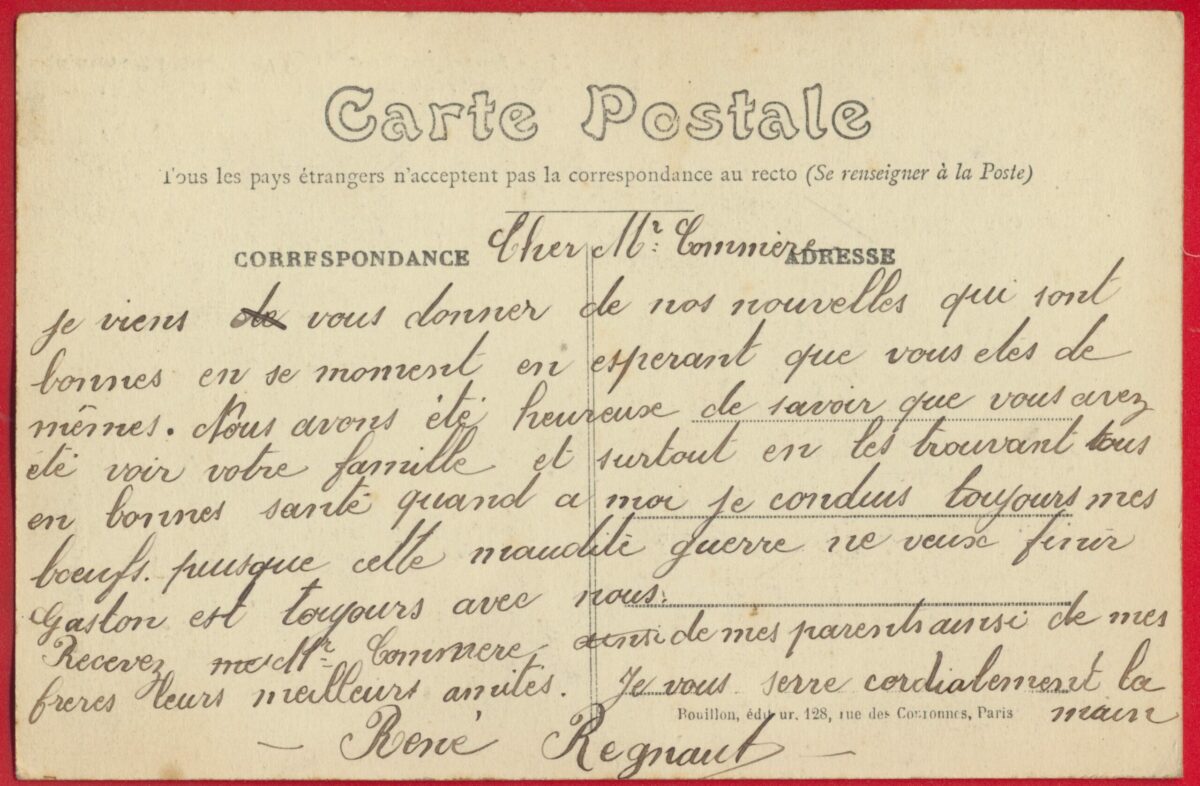 Carte Postale
Tous les pays étrangers n'acceptent pas la correspondance au recto (Se renseigner à la Poste)
CORRESPONDANCE
ADRESSE
Cher Mr. Commère
je viens de vous donner de nos nouvelles qui sont
bonnes en se moment en esperant que vous etes de
mêmes. Nous avons été heureuse de savoir que vous avez
été voir votre famille et surtout en les trouvant tous
en bonnes santé quand a moi je conduis toujours mes
bœufs. puisque cette maudite guerre ne veux finir
Gaston est toujours avec nous.
Recevez Mr. Commere ainsi de mes parents ainsi de mes
freres leurs meilleurs amités. Je vous serre cordialement la
main
Rouillon, éditeur. 128, rue des Couronnes, Paris
— René Regnaut —